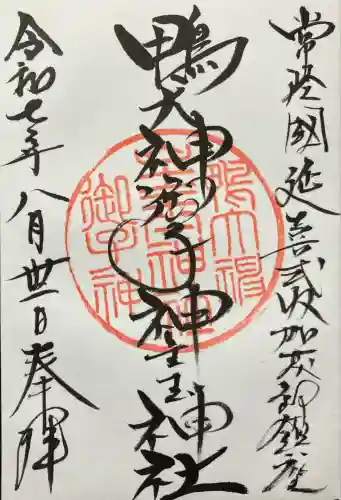 常陸國延喜式内加茂部鎮座
鴨大神御子神主玉神社
令和七年八月卅一日奉拝